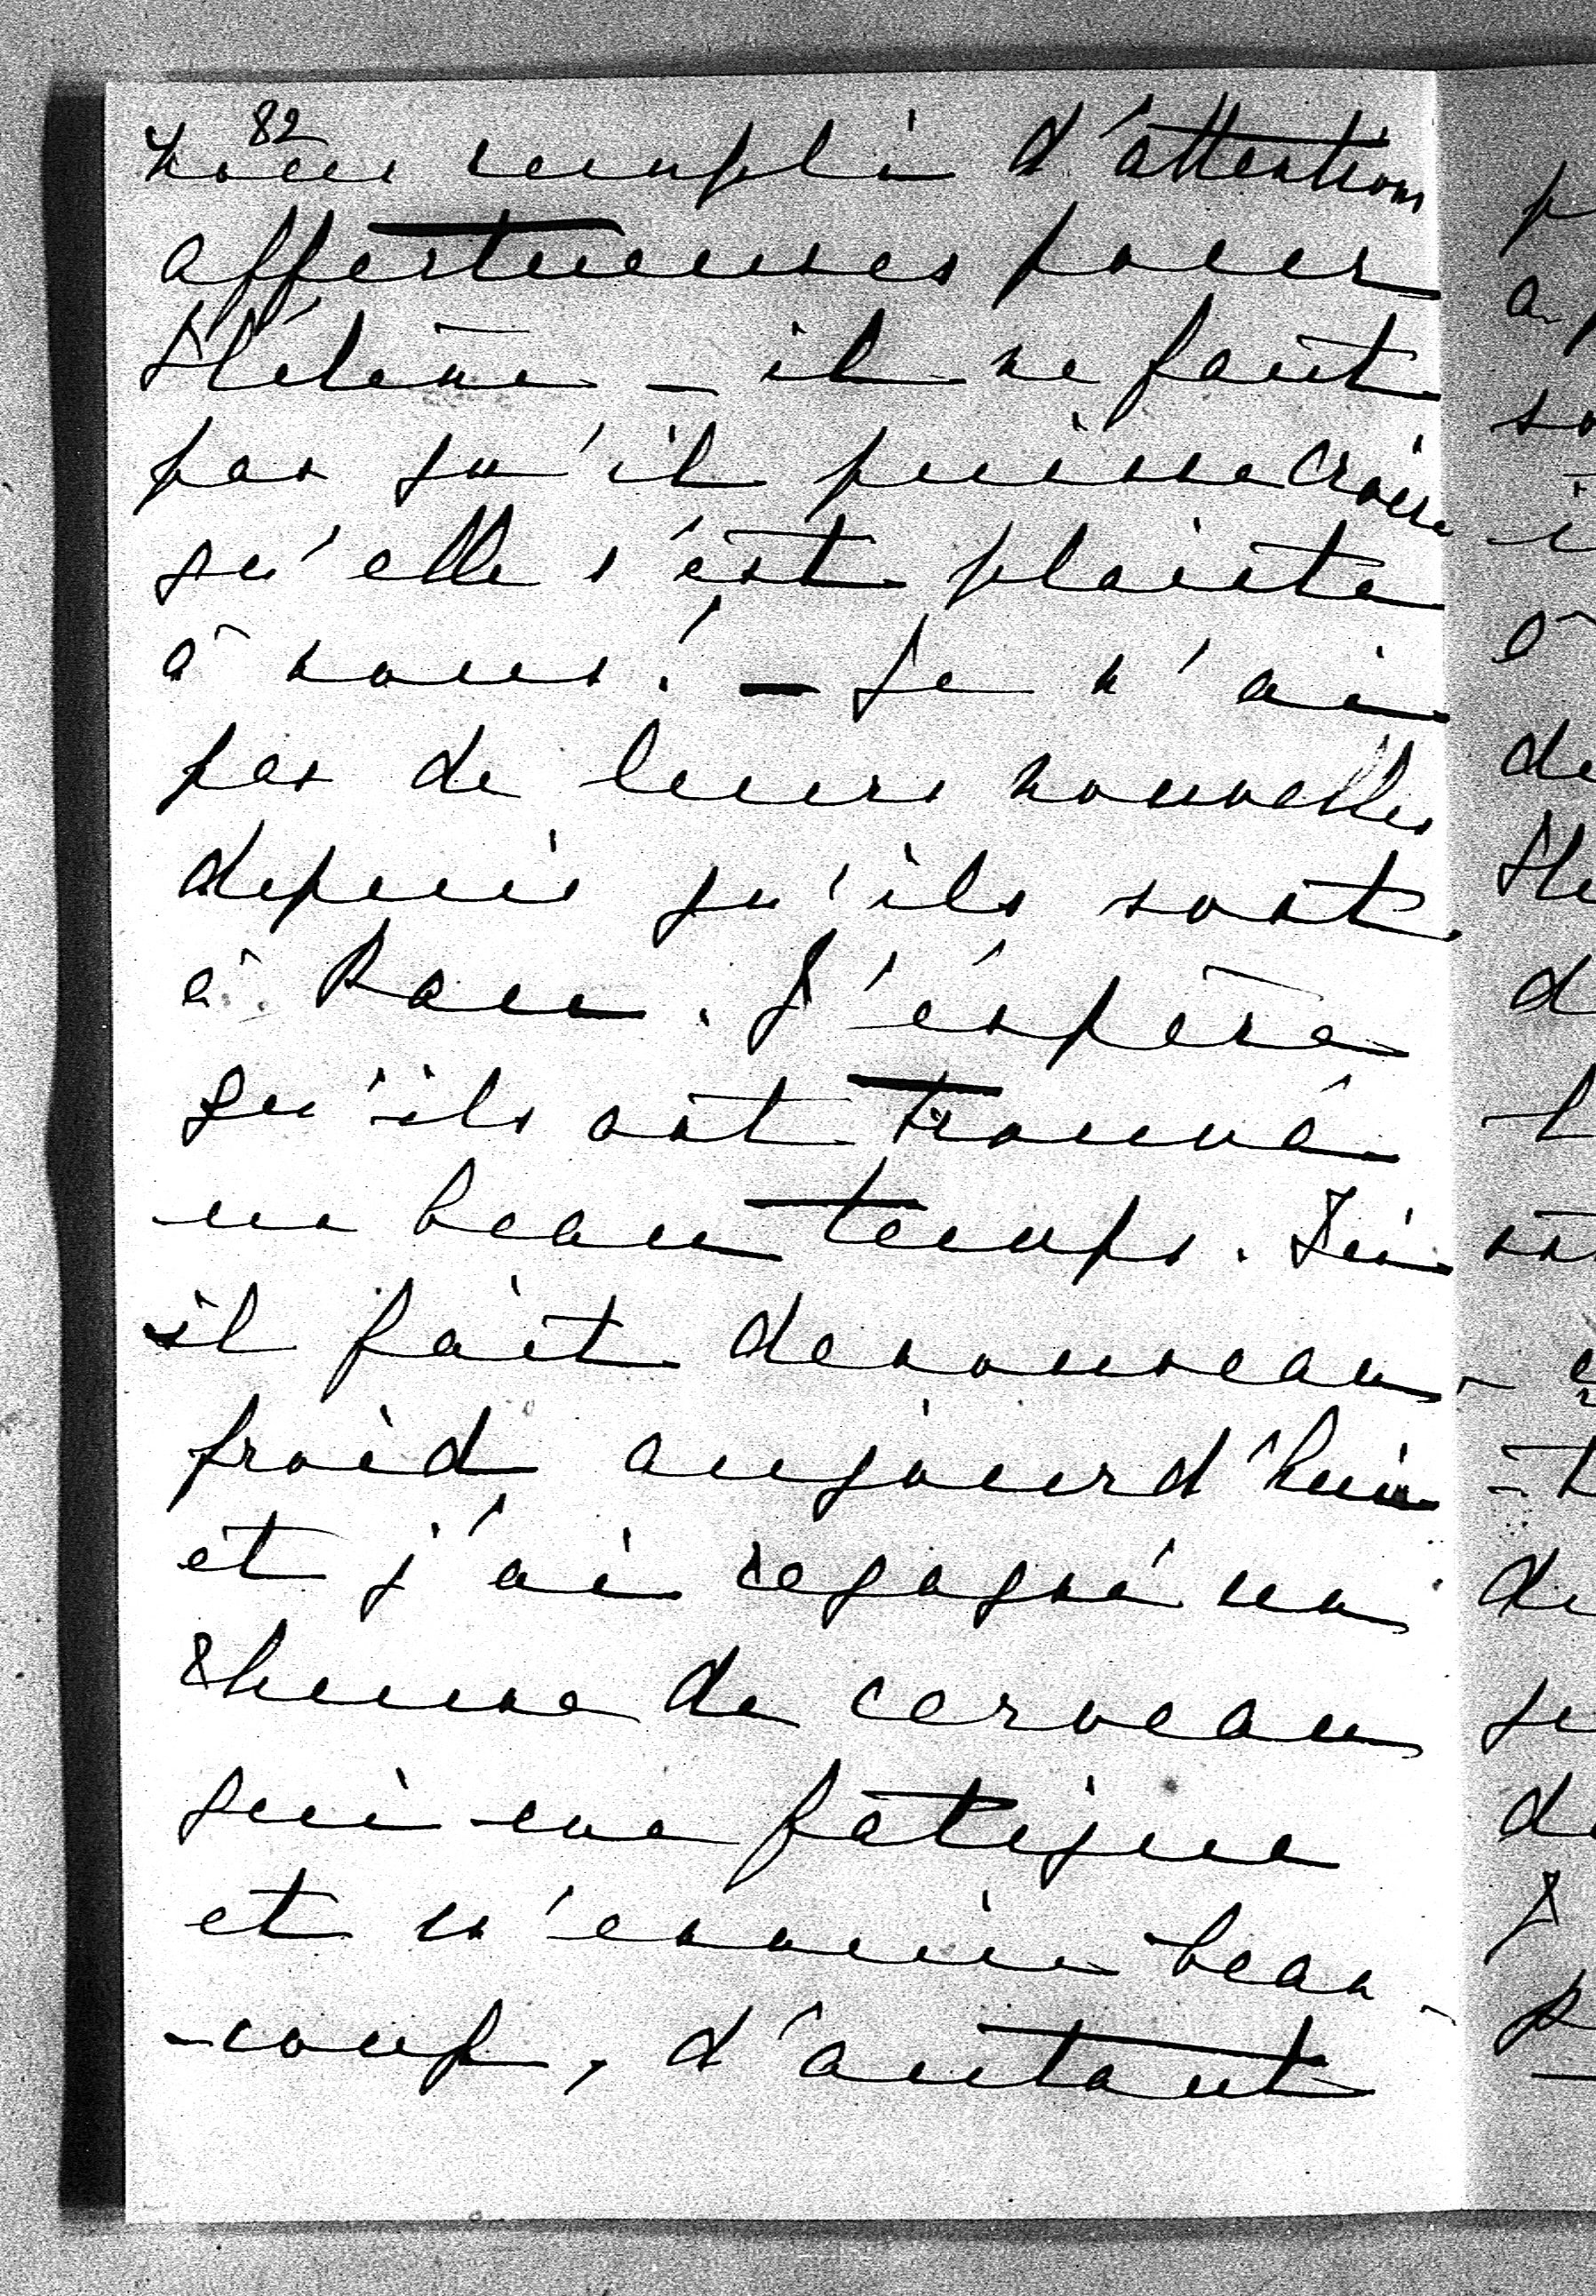 82
nous rempli d'attentions
affectueuses pour
Hélène – il ne faut
pas qu'il puisse croire
qu'elle s'est plainte
à nous! – Je n'ai
pas de leurs nouvelles
depuis qu'ils sont
à Pau. J'espère
qu'ils ont trouvé
un beau temps. Ici
il fait de nouveau
froid aujourd'hui
et j'ai regagné un
rhume de cerveau
qui me fatigue
et m'ennuie beau-
-coup, d'autant